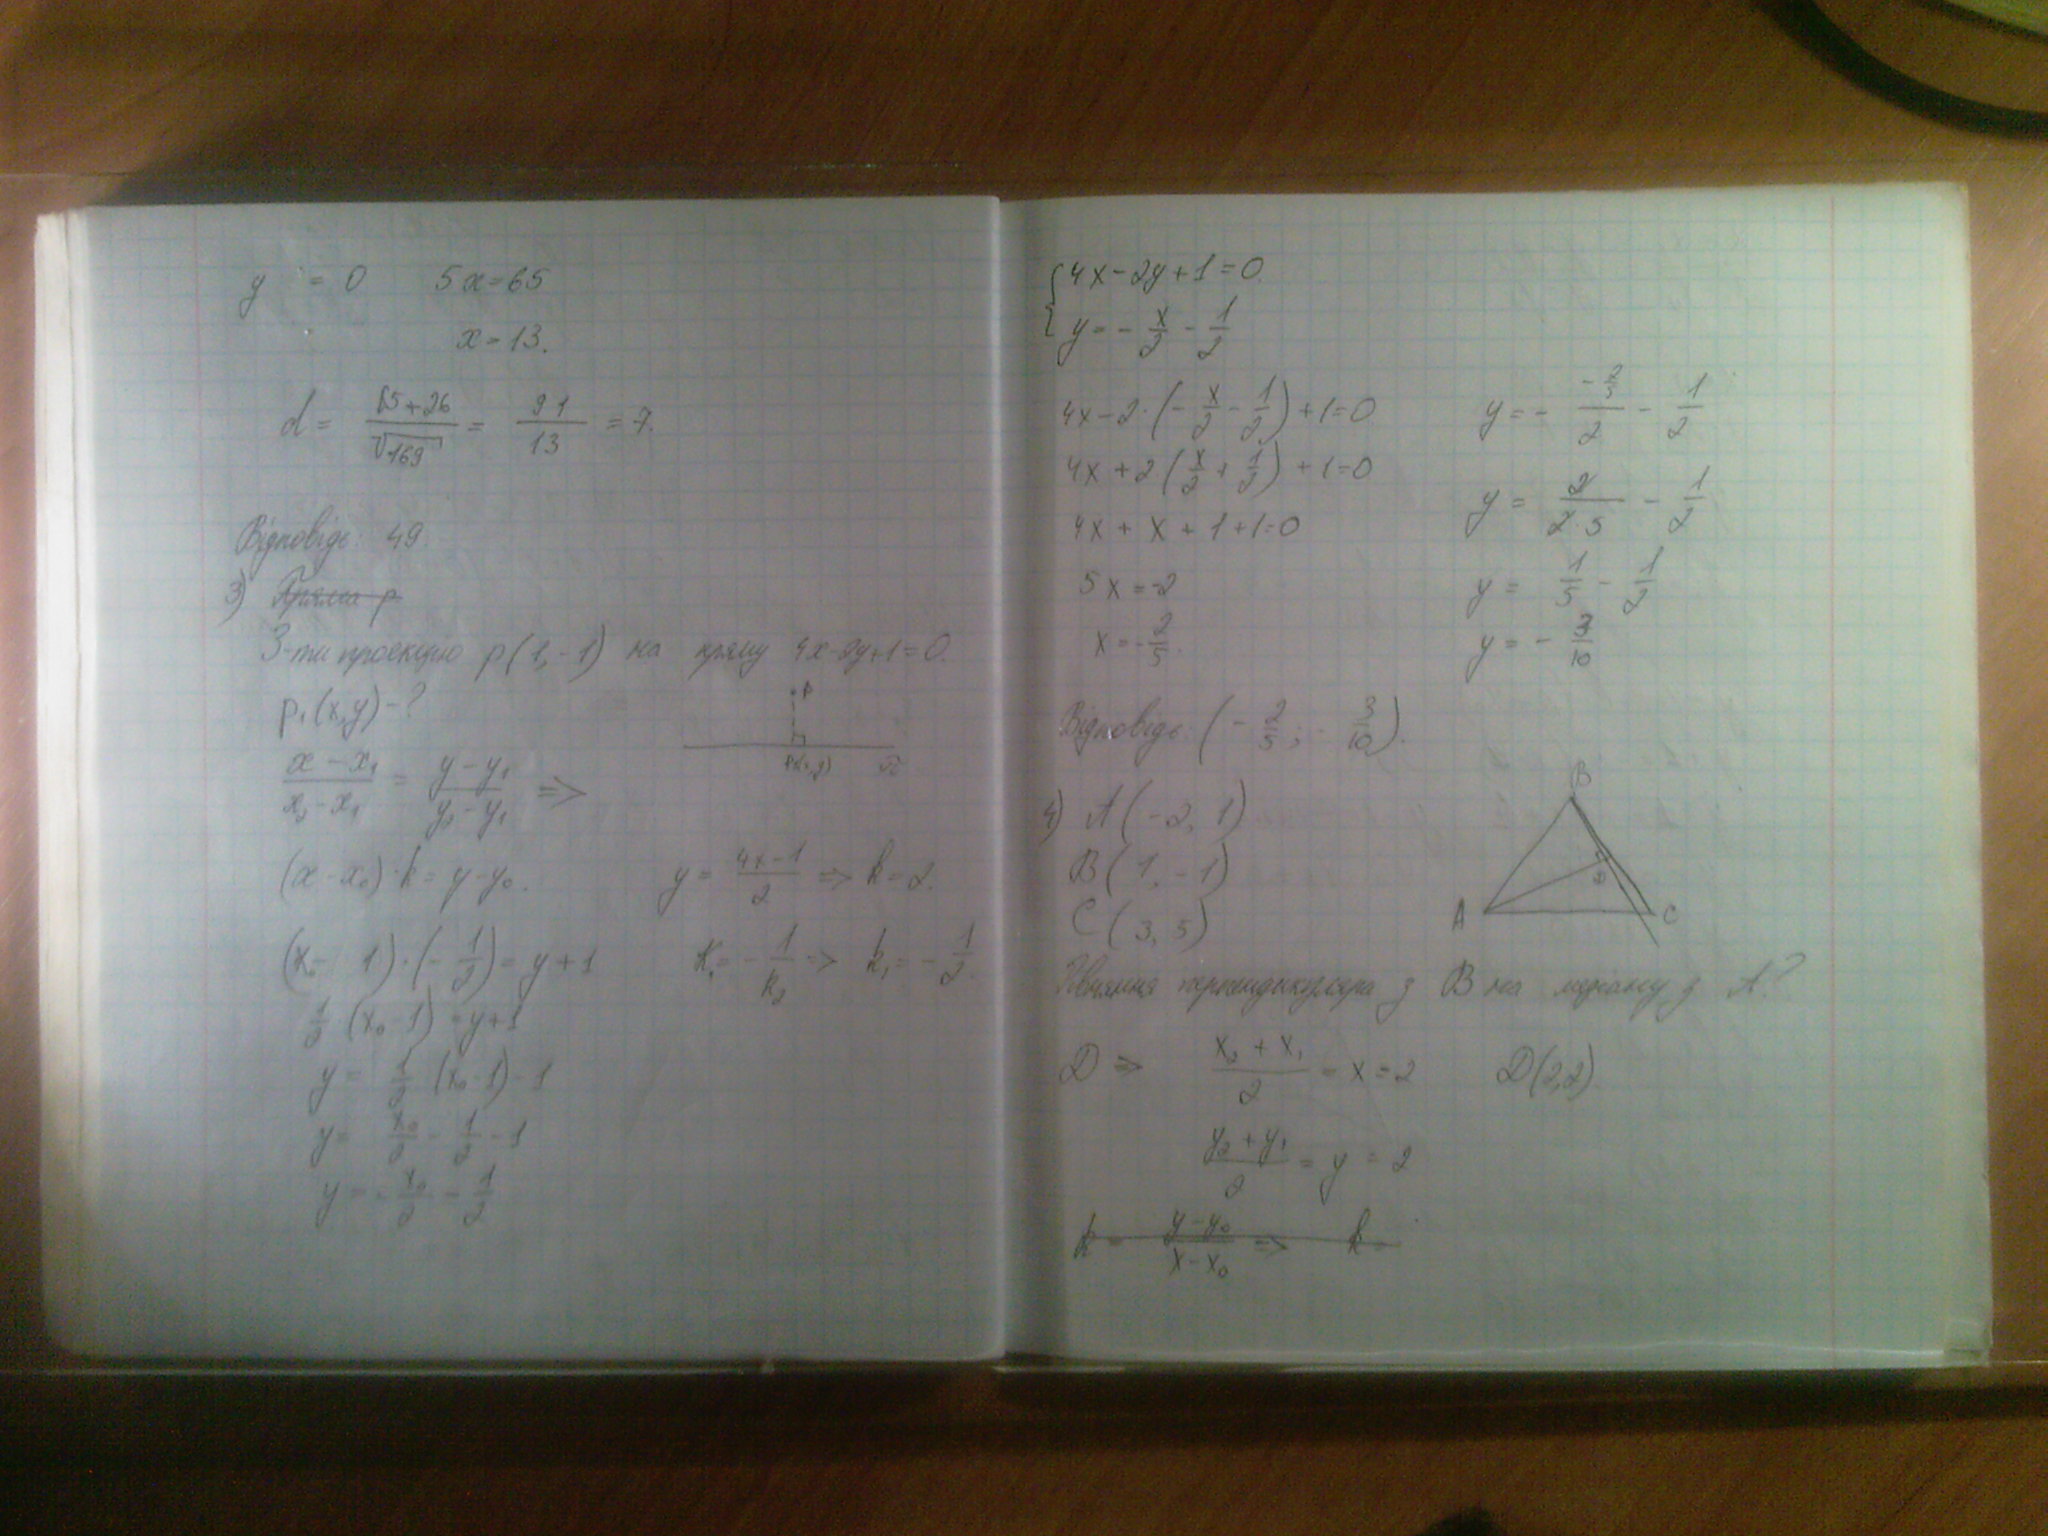 y = 0 5x=65
x=13.
d = 65+26/√169 = 91/13 = 7.
Відповідь: 49.
3) Пряма p
З-ти проекцію p(1,-1) на пряму 4x-2y+1=0.
P₁(x,y)-?
P
P₁(x,y)
(x-x₁)/(x₂-x₁) = (y-y₁)/(y₂-y₁) =>
(x-x₀)·k=y-y₀. y = (4x-1)/2 => k=2.
(x₀- 1)·(-1/2)=y+1 K₁=-1/k₂ => k₁=-1/2.
1/2 (x₀-1)=y+1
y = 1/2 (x₀-1)-1
y = x₀/2 - 1/2 -1
y = -x₀/2 - 1/2
{4x-2y+1=0.
y=-x/2-1/2
4x-2·(-x/2-1/2)+1=0
4x+2(x/2+1/2)+1=0
4x+x+1+1=0
5x=-2
x=-2/5.
y=-(-2/5)/2-1/2
y=2/(2·5)-1/2
y=1/5-1/2
y=-3/10
Відповідь: (-2/5; -3/10).
4) A(-2, 1)
B(1, -1)
C(3, 5)
B
D
A C
Рівняння перпендикуляра з B на медіану з A?
D => (x₂+x₁)/2 = x = 2 D(2,2).
(y₂+y₁)/2 = y = 2
k = (y-y₀)/(x-x₀) => k =